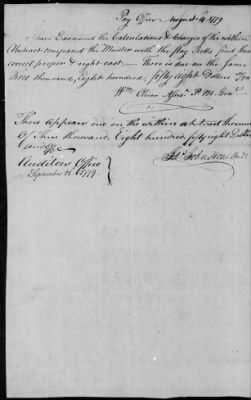 Pay Office August 4 1779
I have Examined the Calculations & Charges of the within
Abstract compared the Muster with the Pay Rolls find them
correct proper & right cast — There is due on the same
three thousand, Eight hundred, fifty eight Dollars
Wm
There appears due on the within abstract the sum
Of Three thousand, Eight hundred, fifty eight Dollars
Auditors Office
September 1779
Johnston Audr